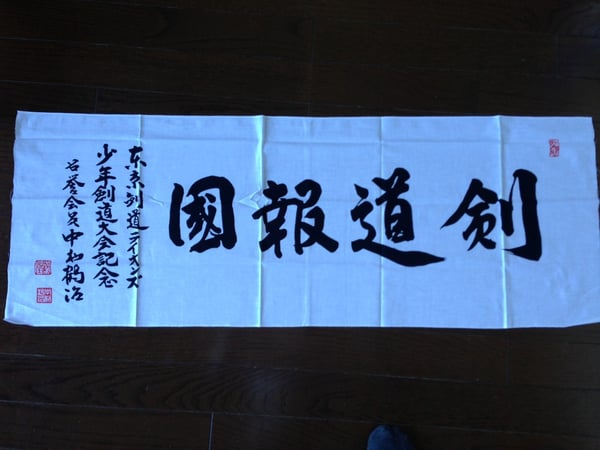 剣道報國
東京剣道ライオンズ
少年剣道大会記念
名誉会員中村鶴治